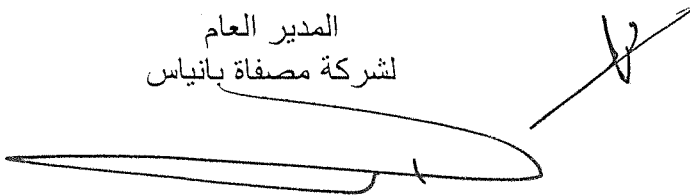 المدير العام
لشركة مصفاة بانياس